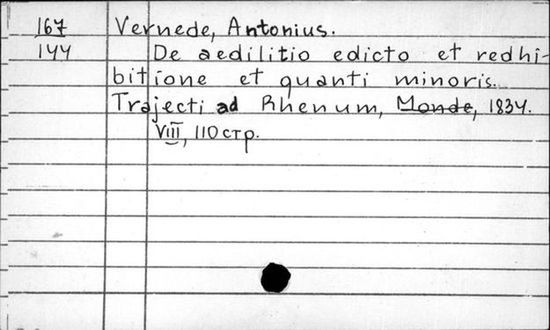 167 Vernede, Antonius.
144 De aedilitio edicto et redhi-
bitione et quanti minoris.
Trajecti ad Rhenum, Monde, 1834.
VIII, 110 стр.